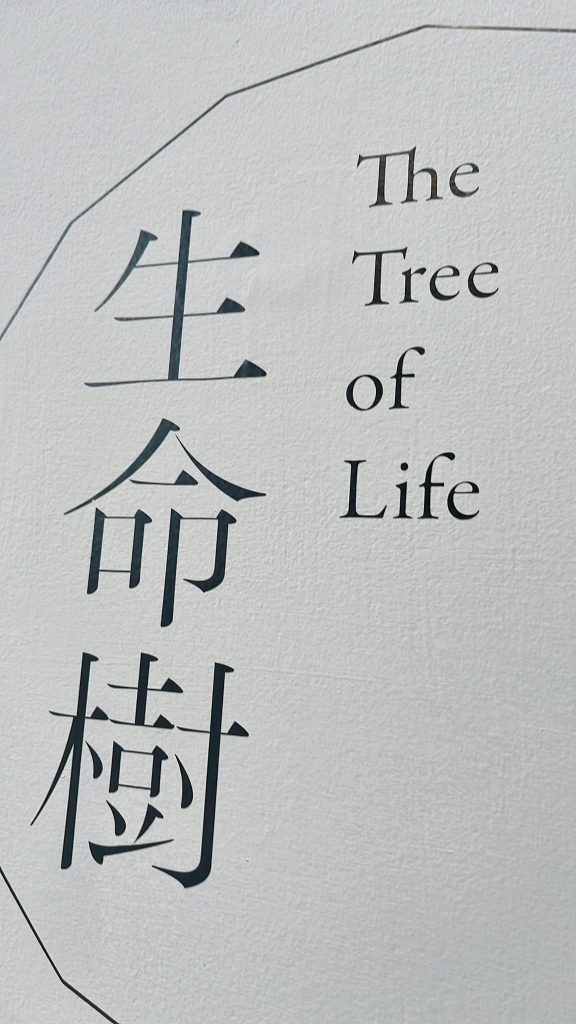 生命樹
The
Tree
of
Life